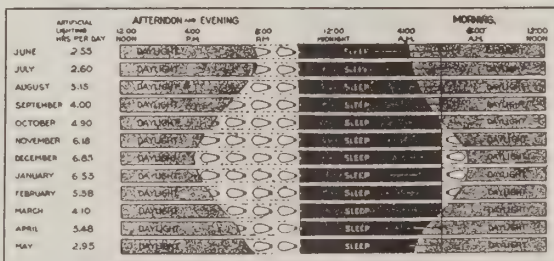 ARTIFICIAL LIGHTING HRS. PER DAY
AFTERNOON AND EVENING
MORNING.
12:00 NOON 4:00 P.M. 8:00 P.M. 12:00 MIDNIGHT 4:00 A.M. 8:00 A.M. 12:00 NOON
JUNE 2.55 DAYLIGHT SLEEP DAYLIGHT
JULY 2.60 DAYLIGHT SLEEP DAYLIGHT
AUGUST 3.15 DAYLIGHT SLEEP DAYLIGHT
SEPTEMBER 4.00 DAYLIGHT SLEEP DAYLIGHT
OCTOBER 4.90 DAYLIGHT SLEEP DAYLIGHT
NOVEMBER 6.18 DAYLIGHT SLEEP DAYLIGHT
DECEMBER 6.85 DAYLIGHT SLEEP DAYLIGHT
JANUARY 6.53 DAYLIGHT SLEEP DAYLIGHT
FEBRUARY 5.58 DAYLIGHT SLEEP DAYLIGHT
MARCH 4.10 DAYLIGHT SLEEP DAYLIGHT
APRIL 3.48 DAYLIGHT SLEEP DAYLIGHT
MAY 2.95 DAYLIGHT SLEEP DAYLIGHT